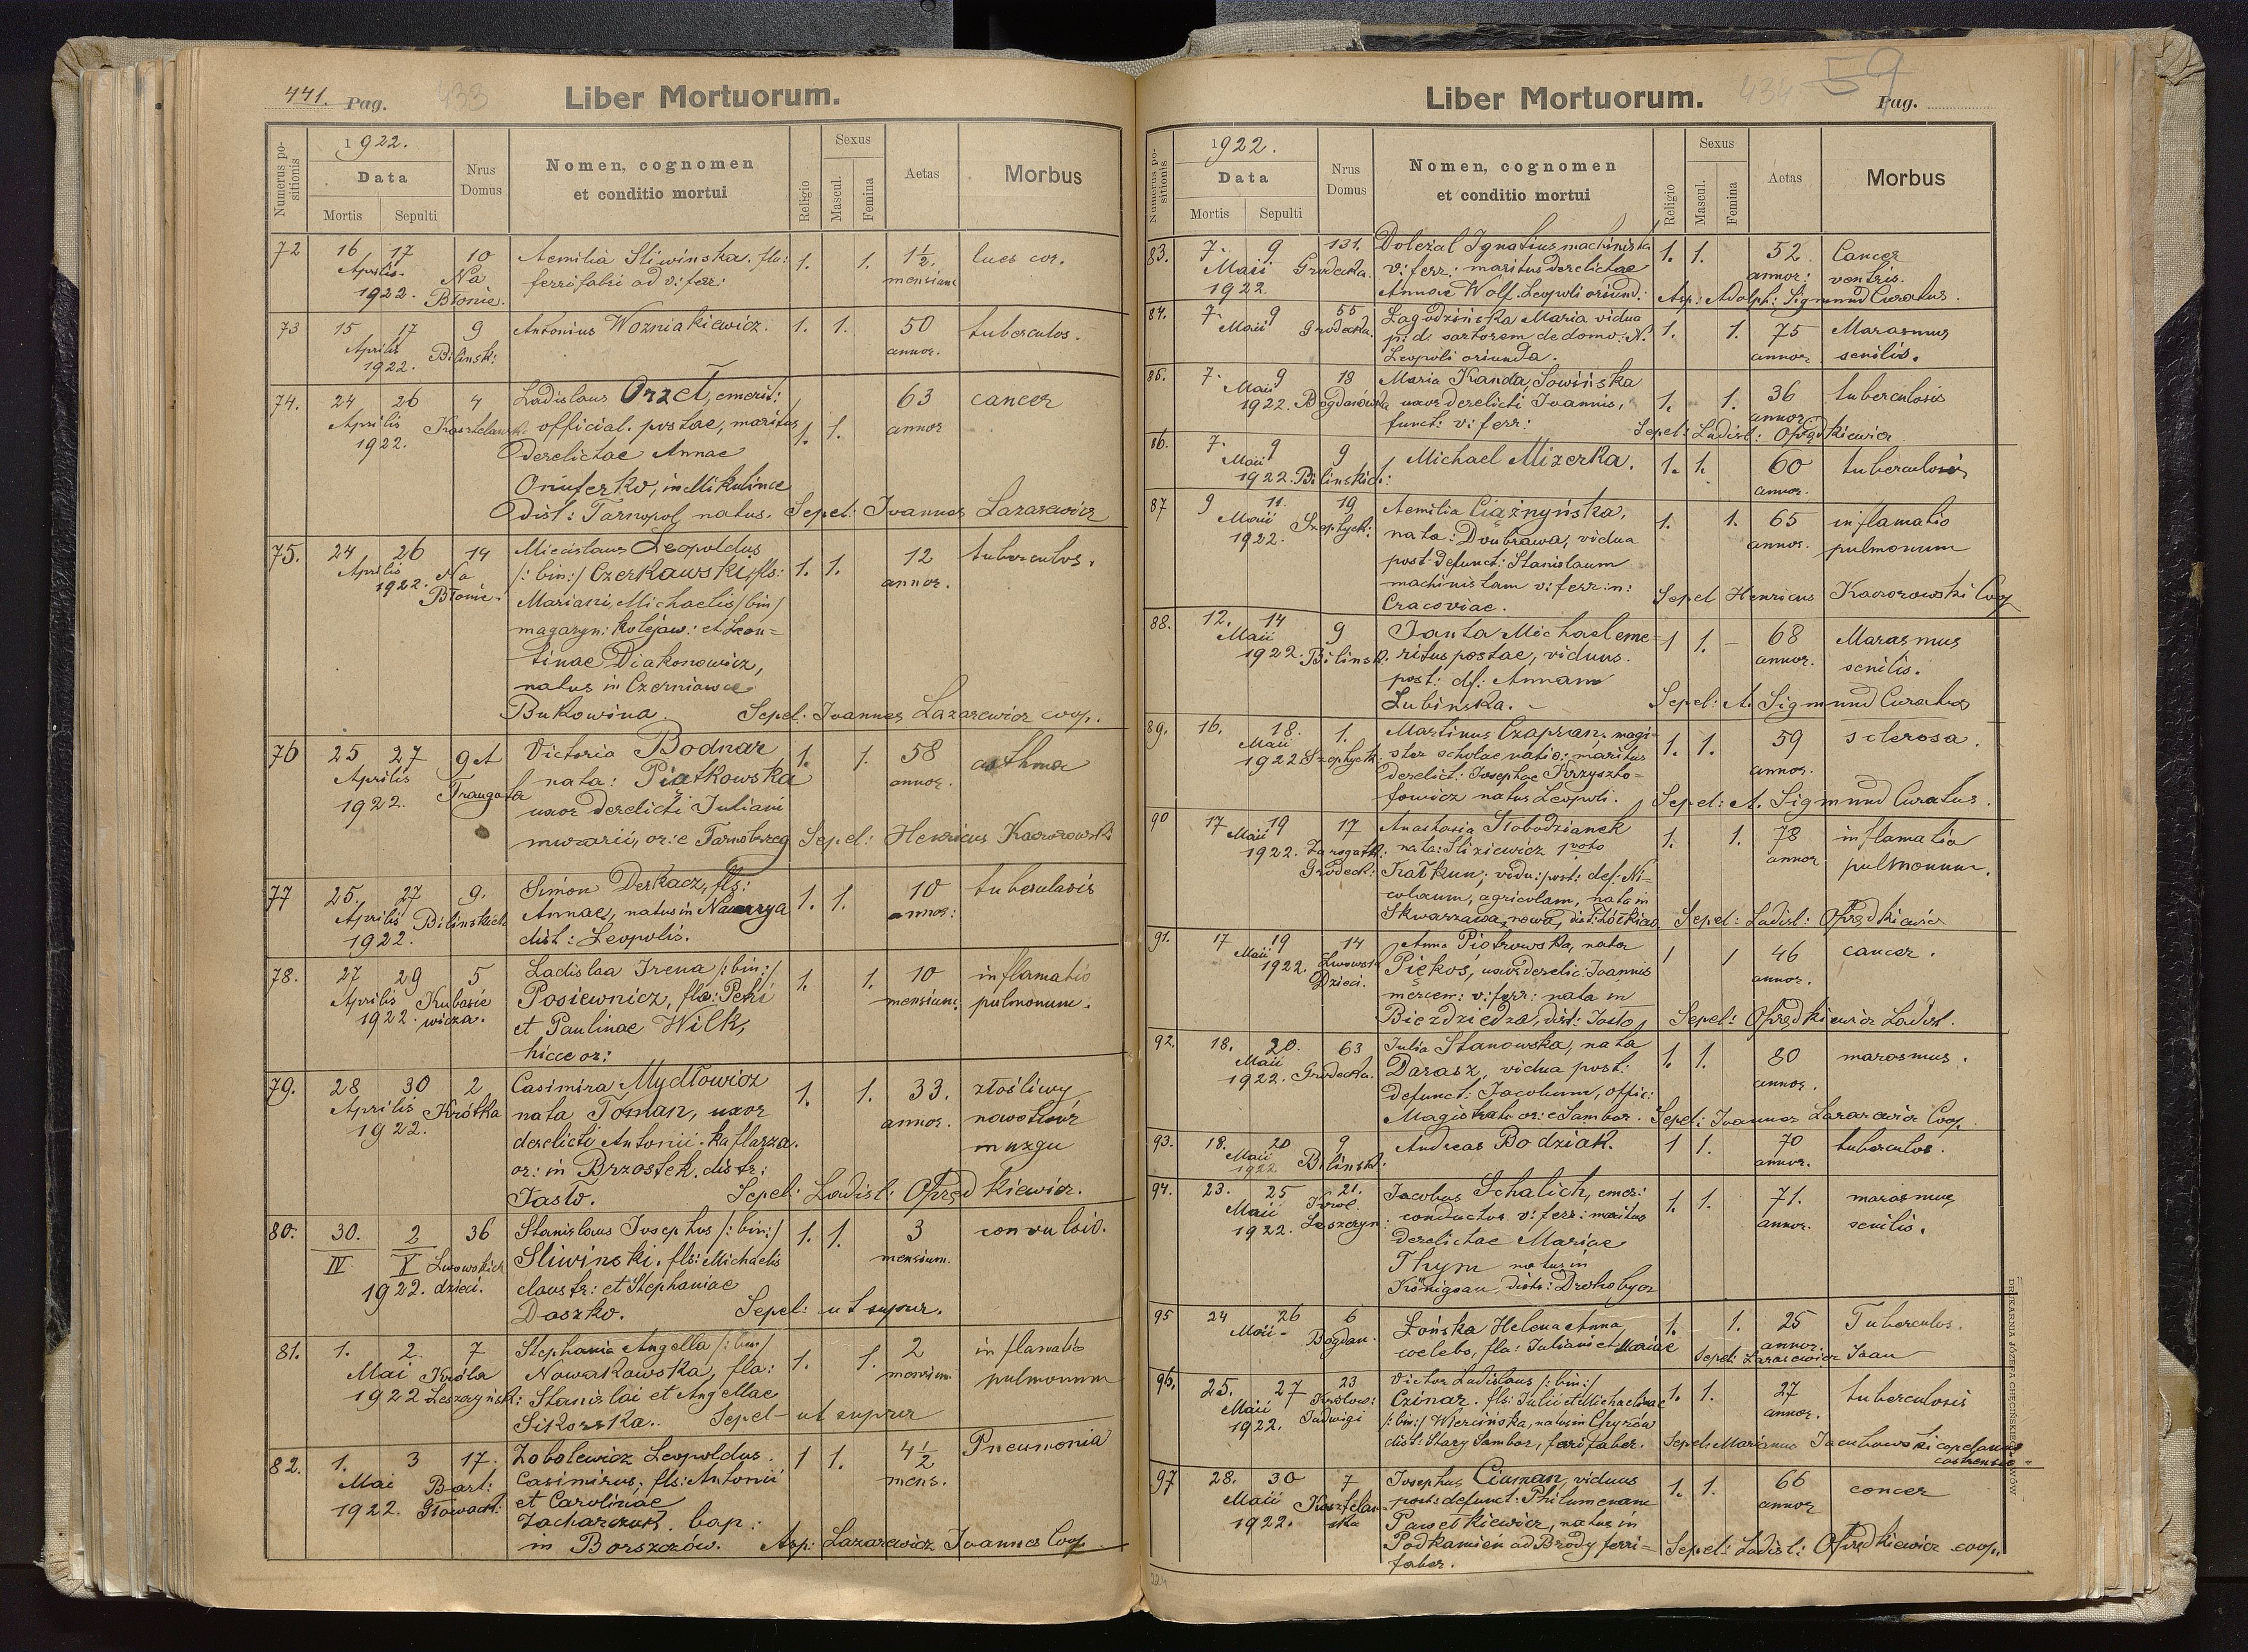 441. Pag. 433 Liber Mortuorum.
Numerus positionis
1922.
Data
Mortis Sepulti
Nrus Domus
Nomen, cognomen
et conditio mortui
Religio
Sexus
Mascul. Femina
Aetas
Morbus
72 16 17 10 Aemilia Sliwinska. fla: 1. 1. 1½. lues con.
Aprilis. Na ferrifabri ad v: ferr: mensium
1922. Błonie.
73 15 17 9 Antonius Wozniakiewicz. 1. 1. 50 tuberculos.
Aprilis Bilinsk: annor.
1922.
74. 24 26 4 Ladislaus Orzeł, emerit: 63 cancer
Aprilis official. postae, maritus 1. 1. annor
1922. derelictae Annae
Onuferko, in Mikulince
dist: Tarnopol natus. Sepel: Ioannes Lazarewicz
75. 24 26 14 Miecislaus Leopoldus 12 tuberculos.
Aprilis Na /: bin:/ Czerkawski, fls: 1. 1. annor.
1922. Błonie. Mariani, Michaelis /bin/
magazyn: kolejow: et Leon=
tinae Diakonowicz,
natus in Czerniowce
Bukowina. Sepel: Ioannes Lazarewicz coop.
76 25 27 9A Victoria Bodnar 1. 1. 58 asthma
Aprilis Traugutta nata: Piatkowska annor.
1922. uxor derelicti Iuliani
murarii, or: e Tarnobrzeg Sepel: Henricus Kaworowski
77 25. 27 9. Simon Derkacz, fls: 10 tuberculosis
Aprilis Bilinskich Annae, natus in Nawarya 1. 1. annor:
1922. dist: Leopolis.
78. 27 29 5 Ladislaa Irena /: bin:/ 1. 1. 10 inflamatio
Aprilis Kubasie Posiewnicz, fla: Petri mensium. pulmonum.
1922. wicza. et Paulinae Wilk,
hicce or:
79. 28 30 2 Casimira Mydłowicz 1. 1. 33. złośliwy
Aprilis Krótka nata Toman, uxor annor. nowotwór
1922. derelicti Antonii. kaflarza. muzgu
or: in Brzostek. distr:
Jasło. Sepel: Ladisl: Oprzędkiewicz.
80. 30. 2 36 Stanislaus Iosephus /: bin:/ 1. 1. 3 convulsio.
IV V Lwowskich Sliwinski. fls: Michaelis mensium.
1922. dzieci. claustr: et Stephaniae
Daszko. Sepel: ut supra.
81. 1. 2. 7 Stephania Angella /: bin/ 1. 1. 2 inflamatio
Mai Króla Nowakowska, fla: mensium pulmonum
1922 Leszczyńsk: Stanislai et Angellae
Sikorska.. Sepel- ut supra
82. 1. 3 17. Zobolewicz Leopoldus. 1 1. 4½ Pneumonia
Mai Bart: Casimirus. fls: Antonii mens.
1922. Głowack: et Carolinae
Zacharczuk. bap:
in Borszczów. Asp: Lazarewicz Ioannes Coop.
Liber Mortuorum. 434 59 Pag.
Numerus positionis
1922.
Data
Mortis Sepulti
Nrus Domus
Nomen, cognomen
et conditio mortui
Religio
Sexus
Mascul. Femina
Aetas
Morbus
83. 7. 9 131. Dolezal Ignatius machinista 1. 1. 52 Cancer
Maii Grodecka. v: ferr: maritus derelictae annor: ventris.
1922. Annae Wolf. Leopoli oriund: Asp: Adolph: Sigmund Curatus.
84. 7. 9 55 Łagodzińska Maria vidua 1. 1. 75 Marasmus
Maii Grodecka. p: df: sartorem de domo: N. annor senilis.
Leopoli oriunda.
85. 7. 9 18 Maria Wanda Sowińska 36 tuberculosis
Maii Bogdanówka uxor derelicti Ioannis, 1. 1. annor
1922. funct: v: ferr: Sepel: Ladisl: Oprzędkiewicz
86. 7. 9 9 Michael Mizerka. 1. 1. 60 tuberculosis
Maii annor.
1922. Bilinskich:
87 9 11. 19 Aemilia Ciążnyńska, 1. 1. 65 inflamatio
Maii Szeptyck: nata: Doubrawa, vidua annor. pulmonum
1922. post defunct: Stanislaum
machinistam v: ferr: n:
Cracoviae. Sepel Henricus Kaworowski Coop
88. 12. 14 9 Janta Michael eme= 1 1. - 68 Marasmus
Maii Bilinsk. ritus postae, viduus. annor. senilis.
1922. post: df: Annam
Lubińska. - Sepel: A. Sigmund Curatus
89. 16. 18. 1. Martinus Czapran. magi= 1. 1. 59 sclerosa.
Maii Szeptyck: ster scholae natio: maritus annor.
1922 derelict: Iosephae Krzyszto=
fowicz natus Leopoli. Sepel: A. Sigmund Curatus.
90 17 19 17 Anastasia Słobodzianek 1. 1. 78 inflamatio
Maii nata: Sliziewicz 1 voto annor pulmonum.
1922. Za rogatk: Grodeck: Kałkun, vidu: post: def: Ni=
colaum, agricolam, nata in
Skwarzawa nowa, dist: Żółkiew. Sepel: Ladisl: Oprzędkiewicz
91. 17 19 14 Anna Piotrowska, nata 1 1 46 cancer.
Maii Lwowsk Piękoś, uxor derelic: Ioannis annor.
1922. Dzieci. mercen: v: ferr: nata in
Bieździedza, dist: Jasło, Sepel: Oprzędkiewicz Ladisl.
92. 18. 20. 63 Iulia Stanowska, nata 1. 1. 80 marasmus.
Maii Darasz, vidua post: annor.
1922. Grodecka. defunct: Iacobum, offic:
Magistratu or: e Sambor. Sepel: Ioannes Lazarewicz Coop.
93. 18. 20 9 Andreas Bodziak. 1 1. 70 tuberculos.
Maii annor.
1922 Bilinsk:
94. 23. 25 21. Iacobus Schalich, emer: 1. 1. 71. marasmus
Maii Krol. conductor v: ferr: maritus annor. senilis.
1922. Leszczyn: derelictae Mariae
Thym natus in
Königsau, distr: Drohobycz
95 24 26 6 Łońska Helena Anna 1. 1. 25 Tuberculos.
Maii- Bogdan. coelebs, fla: Iuliani et Mariae annor.
Sepel: Lazarewicz Ioan
96. 25. 27 23 Victor Ladislaus /: bin:/ 1. 1. 27 tuberculosis
Maii Królow: Czinar. fls: Iulii et Michaelinae annor.
1922. Jadwigi /: bin:/ Wiercińska, natus in Chyrów
dist: Stary Sambor, ferrifaber. Sepel: Marianus Jacubowski capelanus
castrensis
97 28. 30 7 Iosephus Ciuman, viduus 1. 1. 66 cancer
Maii Kasztelań= post: defunct: Philumenam annor
1922. ska Pawełkiewicz, natus in
Podkamień ad Brody ferri=
faber. Sepel: Ladisl: Oprzędkiewicz coop.
224
DRUKARNIA JÓZEFA CHĘCIŃSKIEGO, LWÓW